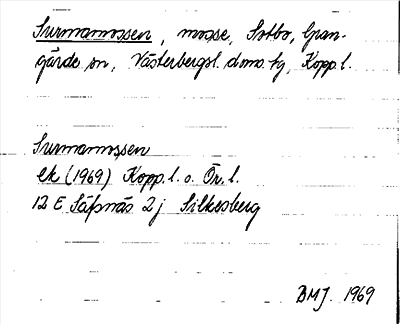 Surmamossen, mosse, Sotbo, Gran-
gärde sn, Västerbergsl. doms. hg, Kopp. l.
Surmamossen
ek (1969) Kopp. l. o. Ör. l.
12 E Säfsnäs 2 j Silkesberg
BMJ. 1969